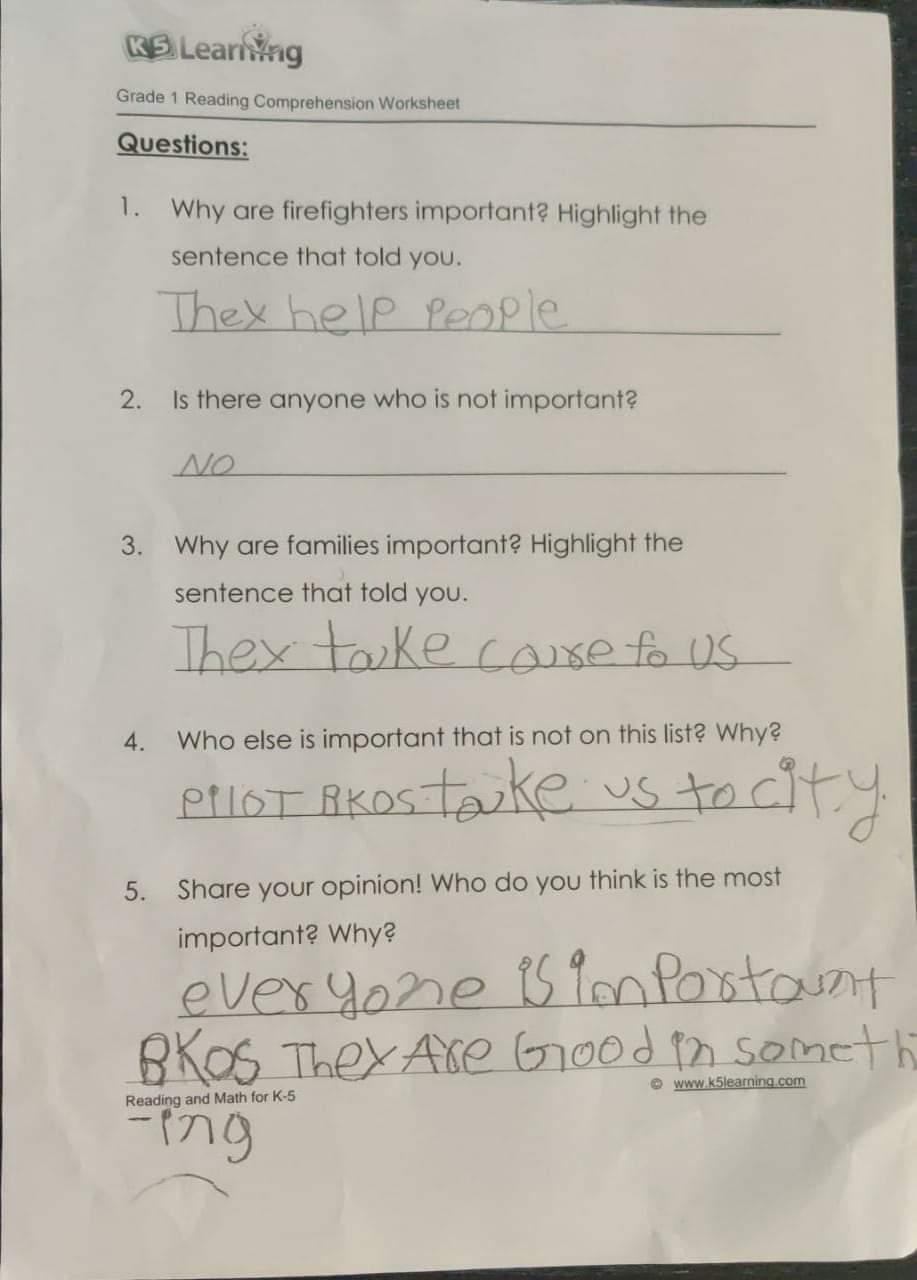 K5 Learning
Grade 1 Reading Comprehension Worksheet
Questions:
1. Why are firefighters important? Highlight the
sentence that told you.
They help people
2. Is there anyone who is not important?
NO
3. Why are families important? Highlight the
sentence that told you.
They take care fo us
4. Who else is important that is not on this list? Why?
PilOT BKOS take us to city.
5. Share your opinion! Who do you think is the most
important? Why?
everyone is importaunt
BKOS They Are Good in someth
-ing
Reading and Math for K-5
© www.k5learning.com